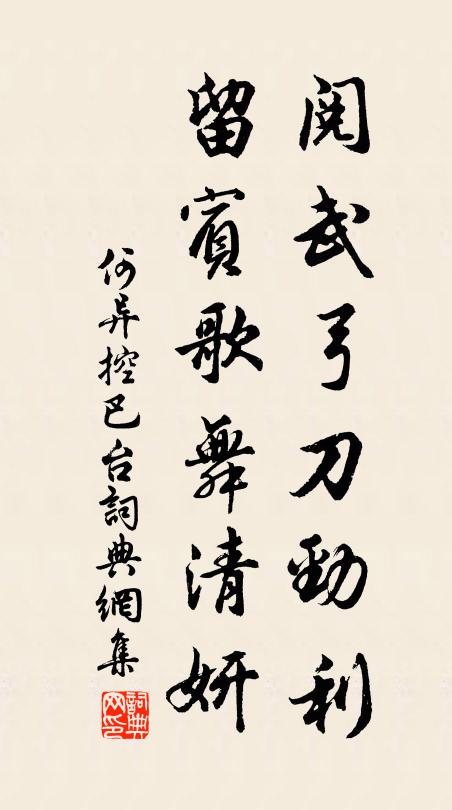 閱武弓刀勁利
留賓歌舞清妍
何异控巴台詞典網集
詞典網印